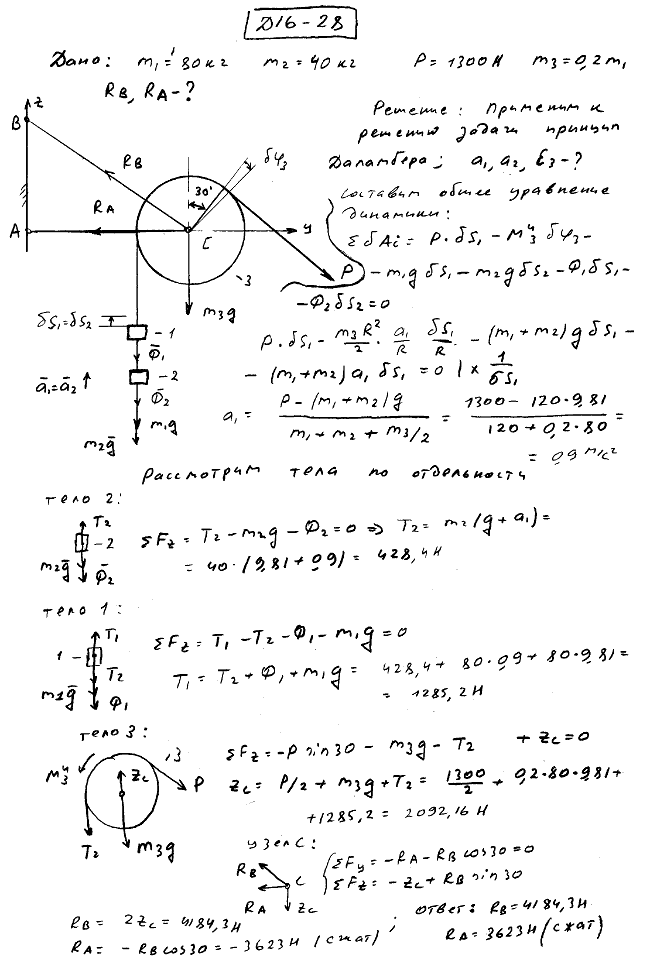 D16-28
Дано: m₁ = 80 кг m₂ = 40 кг P = 1300 Н m₃ = 0,2 m₁
R_B, R_A - ?
Решение: Применим к
решению задачи принцип
Даламбера; a₁, a₂, ε₃ - ?
составим общее уравнение
динамики:
ΣδAi = P·δS₁ - M₃ᶸ δφ₃ -
- m₁g δS₁ - m₂g δS₂ - Φ₁δS₁ -
- Φ₂δS₂ = 0
z
B
R_B
R_A
A
30°
δφ₃
C
y
P
3
m₃g
δS₁=δS₂
- 1
Φ̄₁
- 2
ā₁=ā₂ ↑
Φ̄₂
m₁g
m₂ḡ
P·δS₁ - m₃R²/2 · a₁/R · δS₁/R - (m₁+m₂)g δS₁ -
- (m₁+m₂) a₁ δS₁ = 0 | × 1/δS₁
a₁ = (P - (m₁+m₂)g)/(m₁+m₂+m₃/2) = (1300 - 120·9,81)/(120+0,2·80) =
= 0,9 м/с²
Рассмотрим тела по отдельности
тело 2:
T₂
- 2
m₂ḡ Φ̄₂
ΣF_z = T₂ - m₂g - Φ₂ = 0 => T₂ = m₂(g+a₁) =
= 40·(9,81+0,9) = 428,4 Н
тело 1:
T₁
1 -
T₂
m₁ḡ Φ₁
ΣF_z = T₁ - T₂ - Φ₁ - m₁g = 0
T₁ = T₂ + Φ₁ + m₁g = 428,4 + 80·0,9 + 80·9,81 =
= 1285,2 Н
тело 3:
M₃ᶸ
z_c
3
P
T₂
m₃g
ΣF_z = -P sin30 - m₃g - T₂ + z_c = 0
z_c = P/2 + m₃g + T₂ = 1300/2 + 0,2·80·9,81 +
+ 1285,2 = 2092,16 Н
узел C:
R_B
C
R_A z_c
ΣF_y = -R_A - R_B cos30 = 0
ΣF_z = -z_c + R_B sin30
R_B = 2z_c = 4184,3 Н ;
R_A = -R_B cos30 = -3623 Н (сжат)
Ответ: R_B = 4184,3 Н
R_A = 3623 Н (сжат)